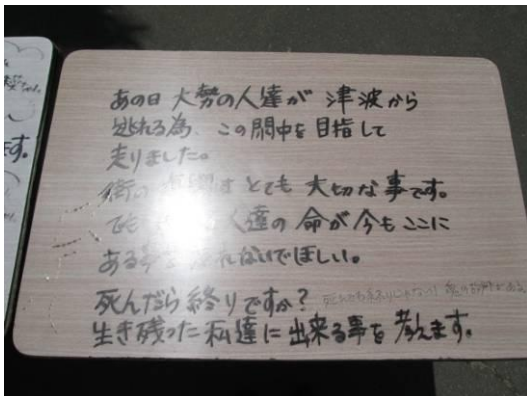 あの日 大勢の人達が 津波から
逃れる為、この閖中を目指して
走りました。
街の は とても 大切な事です。
でも 人達の 命が今もここに
ある れないでほしい。
死んだら終りですか？
生き残った私達に出来る事を考えます。